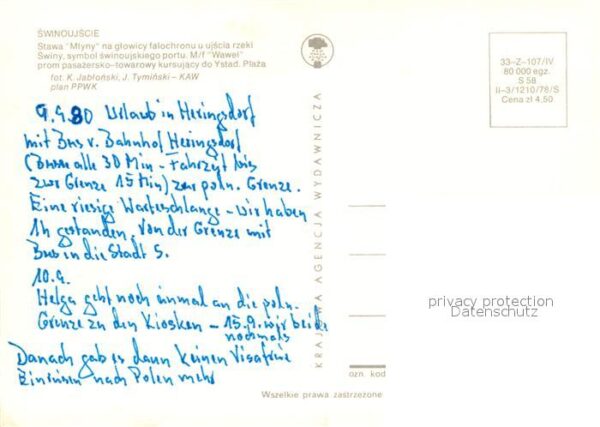 ŚWINOUJŚCIE
Stawa "Młyny" na głowicy falochronu u ujścia rzeki
Świny, symbol świnoujskiego portu. M/f "Wawel"
prom pasażersko-towarowy kursujący do Ystad. Plaża
fot. K. Jabłoński, J. Tymiński – KAW
plan PPWK
9.9.80 Urlaub in Heringsdorf
mit Bus v. Bahnhof Heringsdorf
(Busse alle 30 Min - Fahrzeit bis
zur Grenze 15 Min) zur poln. Grenze.
Eine riesige Warteschlange - wir haben
1h gestanden, von der Grenze mit
Bus in die Stadt S.
10.9.
Helga geht noch einmal an die poln.
Grenze zu den Kiosken - 15.9. wir beide
nochmals
Danach gab es dann keinen Visafreie
Einreisen nach Polen mehr
KRAJOWA AGENCJA WYDAWNICZA
33–Z–107/IV
80 000 egz.
S 58
II–3/1210/78/S
Cena zł 4,50
privacy protection
Datenschutz
ozn. kod
Wszelkie prawa zastrzeżone